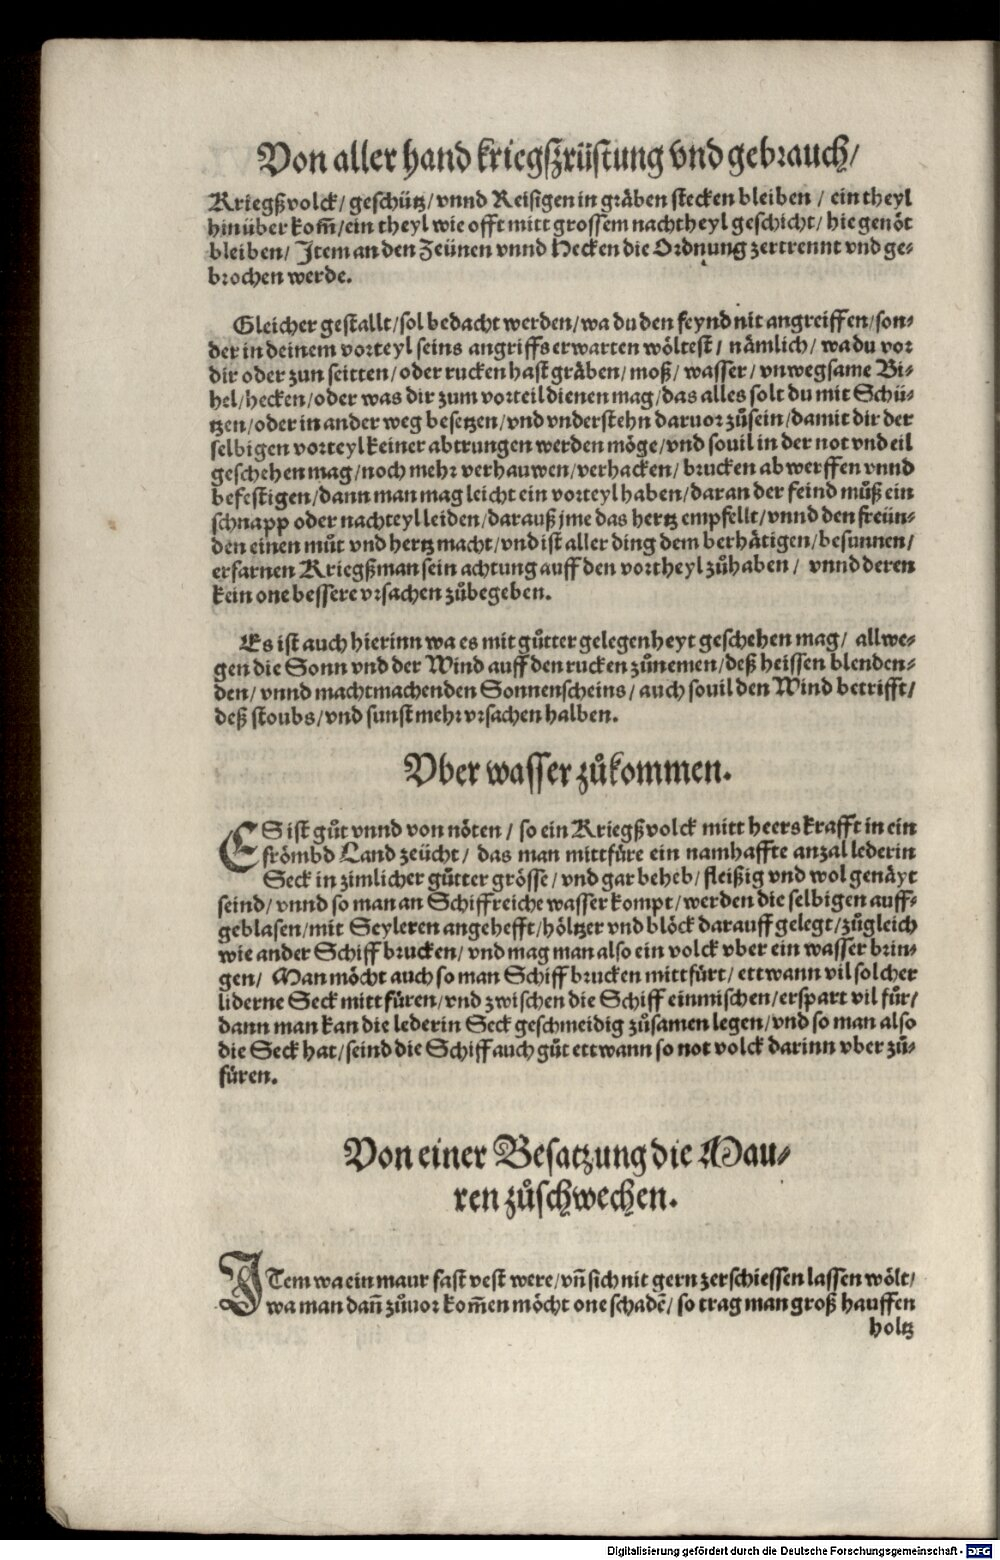 Von aller hand kriegßrüstung vnd gebrauch/
Kriegßvolck/ geschütz/ vnnd Reisigen in gräben stecken bleiben / ein theyl
hinüber kom̃/ein theyl wie offt mitt grossem nachtheyl geschicht/ hie genöt
bleiben/ Jtem an den Zeünen vnnd Hecken die Ordnung zertrennt vnd ge-
brochen werde.
Gleicher gestallt/sol bedacht werden/wa du den feynd nit angreiffen/son-
der in deinem vorteyl seins angriffs erwarten wöltest/ nämlich/ wa du vor
dir oder zun seitten/oder rucken hast gräben/ moß/ wasser/ vnwegsame Bi-
hel/hecken/oder was dir zum vorteil dienen mag/das alles solt du mit Schü-
tzen/oder in ander weg besetzen/vnd vnderstehn daruor zůsein/damit dir der
selbigen vorteyl keiner abtrungen werden möge/vnd souil in der not vnd eil
geschehen mag/noch mehr verhauwen/verhacken/ brucken abwerffen vnnd
befestigen/dann man mag leicht ein vorteyl haben/daran der feind můß ein
schnapp oder nachteyl leiden/darauß jme das hertz empfellt/vnnd den freün-
den einen můt vnd hertz macht/vnd ist aller ding dem berhätigen/besunnen/
erfarnen Kriegßman sein achtung auff den vortheyl zůhaben / vnnd deren
kein one bessere vrsachen zůbegeben.
Es ist auch hierinn wa es mit gůtter gelegenheyt geschehen mag/ allwe-
gen die Sonn vnd der Wind auff den rucken zůnemen/deß heissen blenden-
den/ vnnd machtmachenden Sonnenscheins/ auch souil den Wind betrifft/
deß stoubs/vnd sunst mehr vrsachen halben.
Vber wasser zůkommen.
ES ist gůt vnnd von nöten / so ein Kriegßvolck mitt heerskrafft in ein
frömbd Land zeücht/ das man mittfüre ein namhaffte anzal lederin
Seck in zimlicher gůtter grösse/ vnd gar beheb/ fleißig vnd wol genäyt
seind/ vnnd so man an Schiffreiche wasser kompt/werden die selbigen auff-
geblasen/mit Seyleren angehefft/höltzer vnd blöck darauff gelegt/zůgleich
wie ander Schiffbrucken/ vnd mag man also ein volck vber ein wasser brin-
gen/ Man möcht auch so man Schiffbrucken mittfürt/ ettwann vil solcher
liderne Seck mitt füren/vnd zwischen die Schiff einmischen/erspart vil fůr/
dann man kan die lederin Seck geschmeidig zůsamen legen/vnd so man also
die Seck hat/seind die Schiff auch gůt ettwann so not volck darinn vber zů-
füren.
Von einer Besatzung die Mau-
ren zůschwechen.
JTem wa ein maur fast vest were/vñ sich nit gern zerschiessen lassen wölt/
wa man dañ zůuor kom̃en möcht one schadẽ/ so trag man groß hauffen
holtz
Digitalisierung gefördert durch die Deutsche Forschungsgemeinschaft - DFG